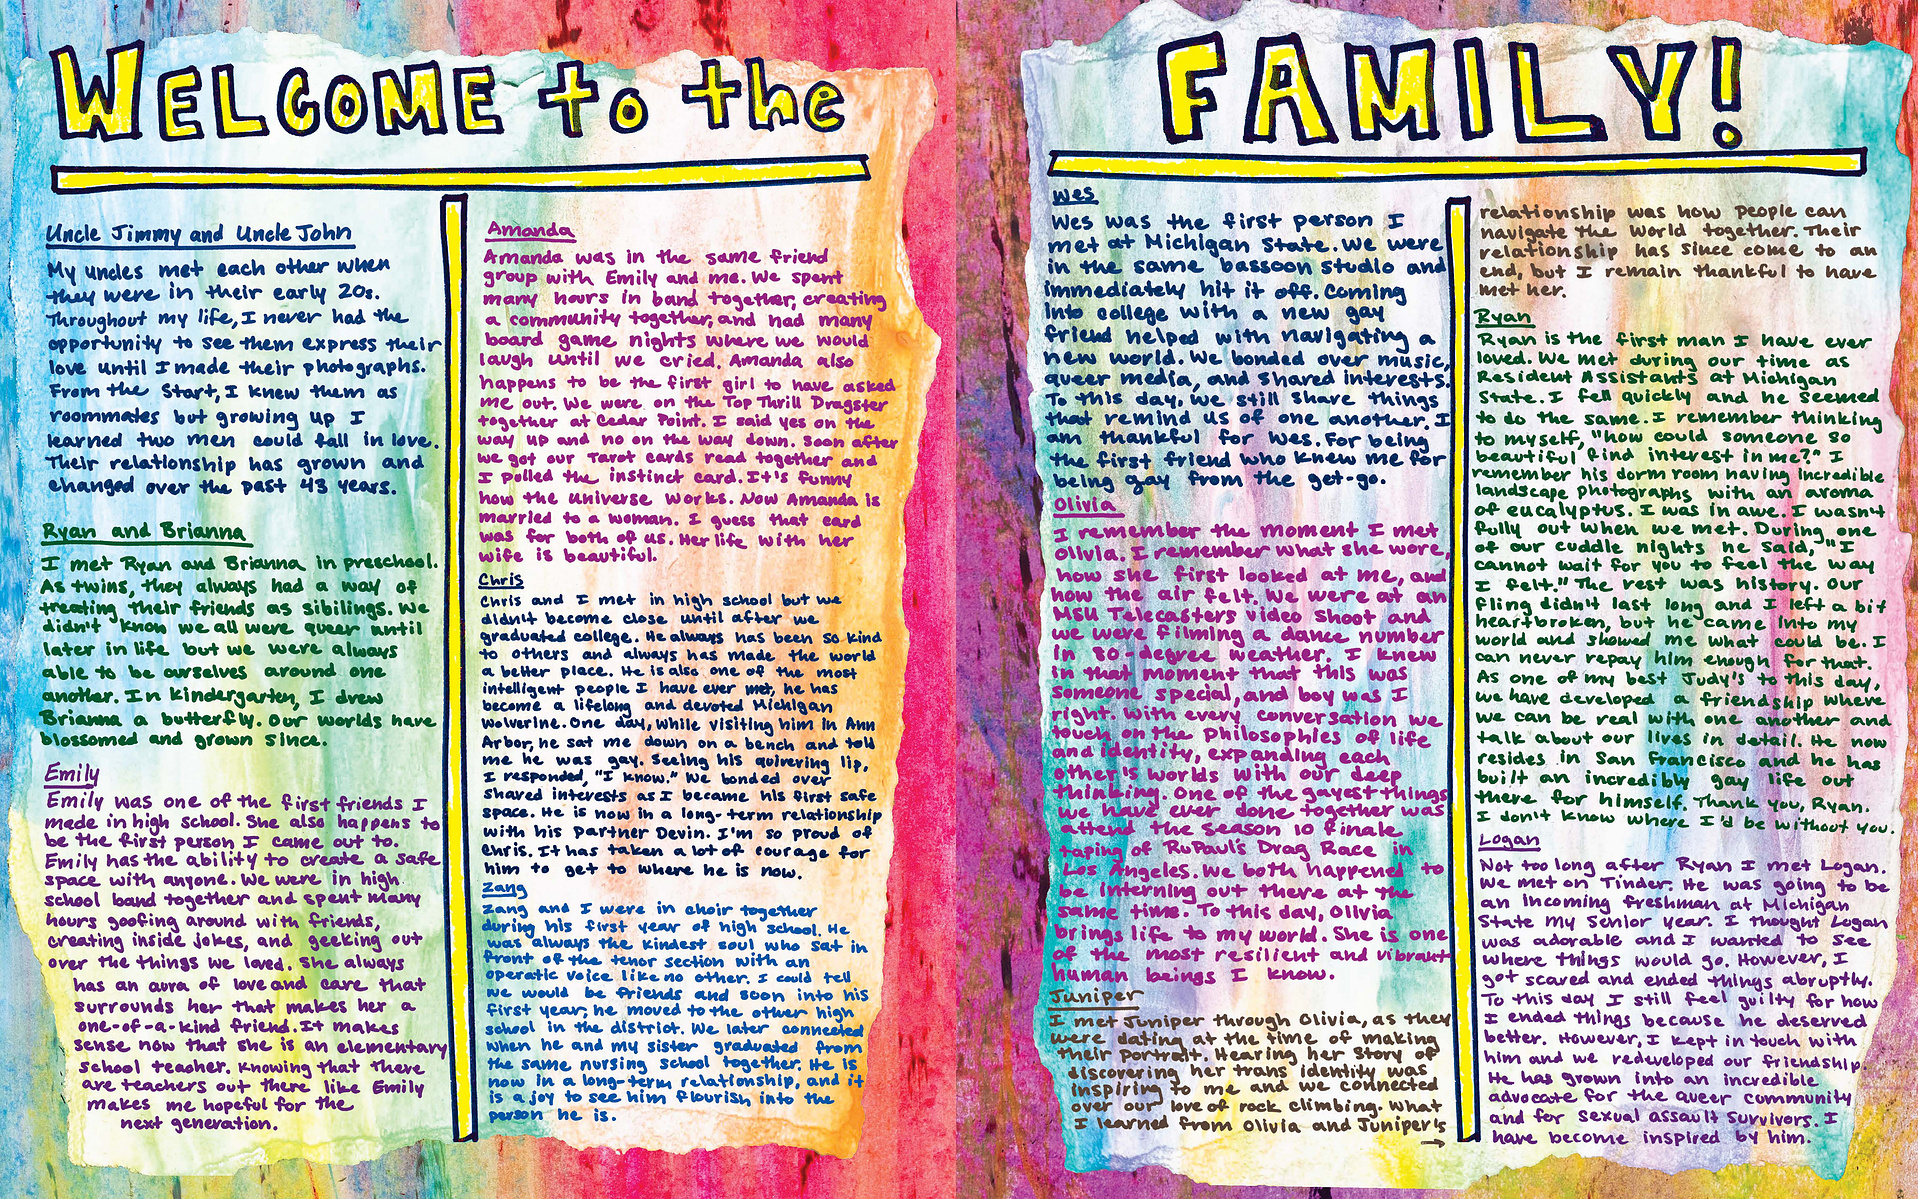 WELCOME to the
Uncle Jimmy and Uncle John
My uncles met each other when
they were in their early 20s.
Throughout my life, I never had the
opportunity to see them express their
love until I made their photographs.
From the Start, I knew them as
roommates but growing up I
learned two men could fall in love.
Their relationship has grown and
changed over the past 43 years.
Ryan and Brianna
I met Ryan and Brianna in preschool.
As twins, they always had a way of
treating their friends as sibilings. We
didn't know we all were queer until
later in life but we were always
able to be ourselves around one
another. In Kindergarten, I drew
Brianna a butterfly. Our worlds have
blossomed and grown since.
Emily
Emily was one of the first friends I
made in high school. She also happens to
be the first person I came out to.
Emily has the ability to create a safe
space with anyone. We were in high
school band together and spent many
hours goofing around with friends,
creating inside jokes, and geeking out
over the things we loved. She always
has an aura of love and care that
surrounds her that makes her a
one-of-a-kind friend. It makes
sense now that she is an elementary
school teacher. Knowing that there
are teachers out there like Emily
makes me hopeful for the
next generation.
Amanda
Amanda was in the same friend
group with Emily and me. We spent
many hours in band together, creating
a community together, and had many
board game nights where we would
laugh until we cried. Amanda also
happens to be the first girl to have asked
me out. We were on the Top Thrill Dragster
together at Cedar Point. I said yes on the
way up and no on the way down. Soon after
we got our Tarot cards read together and
I pulled the instinct card. It's funny
how the universe works. Now Amanda is
married to a woman. I guess that card
was for both of us. Her life with her
wife is beautiful.
Chris
Chris and I met in high school but we
didn't become close until after we
graduated college. He always has been so kind
to others and always has made the world
a better place. He is also one of the most
intelligent people I have ever met, he has
become a lifelong and devoted Michigan
Wolverine. One day, while visiting him in Ann
Arbor, he sat me down on a bench and told
me he was gay. Seeing his quivering lip,
I responded, "I know." We bonded over
shared interests as I became his first safe
space. He is now in a long-term relationship
with his partner Devin. I'm so proud of
Chris. It has taken a lot of courage for
him to get to where he is now.
Zang
Zang and I were in choir together
during his first year of high school. He
was always the kindest soul who sat in
front of the tenor section with an
operatic voice like no other. I could tell
we would be friends and soon into his
first year, he moved to the other high
school in the district. We later connected
when he and my sister graduated from
the same nursing school together. He is
now in a long-term relationship, and it
is a joy to see him flourish into the
person he is.
FAMILY!
Wes
Wes was the first person I
met at Michigan State. We were
in the same bassoon studio and
immediately hit it off. Coming
into college with a new gay
friend helped with navigating a
new world. We bonded over music,
queer media, and shared interests.
To this day, we still share things
that remind us of one another. I
am thankful for Wes. For being
the first friend who knew me for
being gay from the get-go.
Olivia
I remember the moment I met
Olivia. I remember what she wore,
how she first looked at me, and
how the air felt. We were at an
MSU Telecasters video shoot and
we were filming a dance number
in 80-degree weather. I knew
in that moment that this was
someone special, and boy was I
right. With every conversation we
touch on the philosophies of life
and identity, expanding each
other's worlds with our deep
thinking. One of the gayest things
we have ever done together was
attend the season 10 finale
taping of RuPaul's Drag Race in
Los Angeles. We both happened to
be interning out there at the
same time. To this day, Olivia
brings life to my world. She is one
of the most resilient and vibrant
human beings I know.
Juniper
I met Juniper through Olivia, as they
were dating at the time of making
their portrait. Hearing her story of
discovering her trans identity was
inspiring to me and we connected
over our love of rock climbing. What
I learned from Olivia and Juniper's
→
relationship was how people can
navigate the world together. Their
relationship has since come to an
end, but I remain thankful to have
met her.
Ryan
Ryan is the first man I have ever
loved. We met during our time as
Resident Assistants at Michigan
State. I fell quickly and he seemed
to do the same. I remember thinking
to myself, "how could someone so
beautiful find interest in me?" I
remember his dorm room having incredible
landscape photographs with an aroma
of eucalyptus. I was in awe. I wasn't
fully out when we met. During one
of our cuddle nights he said, "I
cannot wait for you to feel the way
I felt." The rest was history. Our
fling didn't last long and I left a bit
heartbroken, but he came into my
world and showed me what could be. I
can never repay him enough for that.
As one of my best Judy's to this day,
we have developed a friendship where
we can be real with one another and
talk about our lives in detail. He now
resides in San Francisco and he has
built an incredibly gay life out
there for himself. Thank you, Ryan.
I don't know where I'd be without you.
Logan
Not too long after Ryan I met Logan.
We met on Tinder. He was going to be
an incoming freshman at Michigan
State my senior year. I thought Logan
was adorable and I wanted to see
where things would go. However, I
got scared and ended things abruptly.
To this day I still feel guilty for how
I ended things because he deserved
better. However, I kept in touch with
him and we redeveloped our friendship.
He has grown into an incredible
advocate for the queer community
and for sexual assault survivors. I
have become inspired by him.